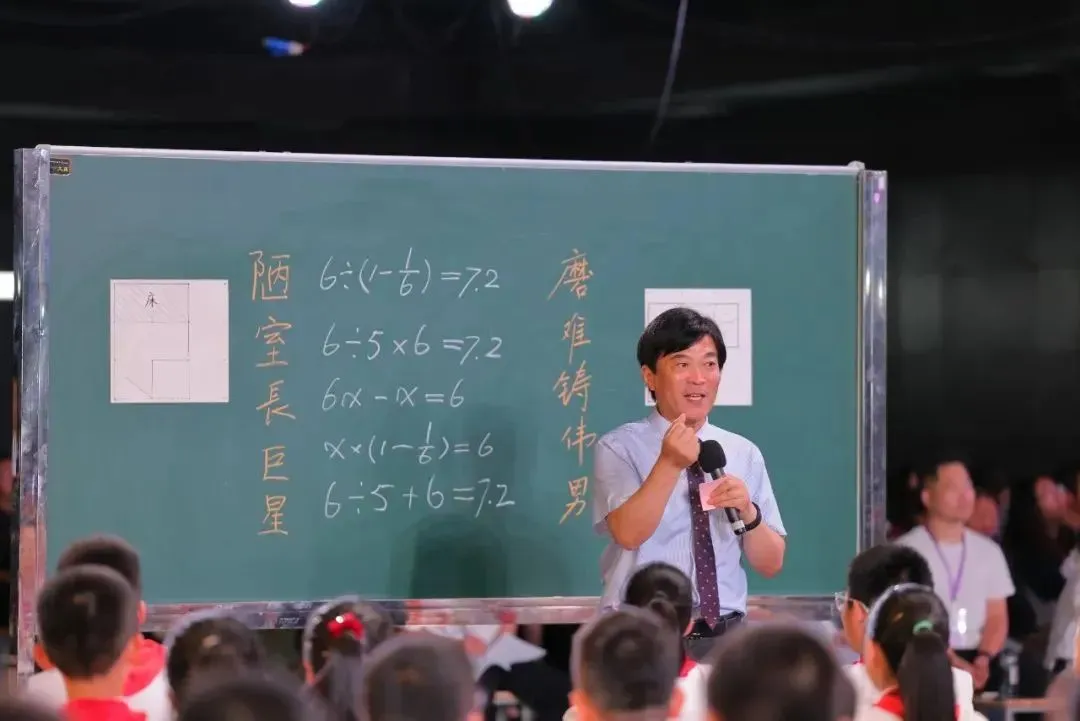 床
陋室長巨星
6÷(1-1/6)=7.2
6÷5×6=7.2
6x-x=6
x×(1-1/6)=6
6÷5+6=7.2
磨难铸伟男